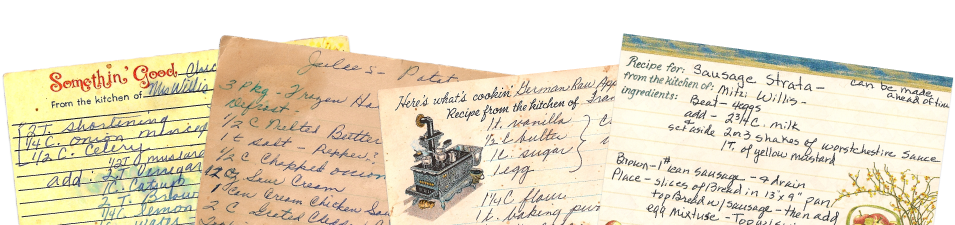 Somethin' Good
From the kitchen of Mrs Willis
2 T. shortening
1/4 C. onion minced
1/2 C. Celery
1/2 T mustard
add: 2 T Vinegar
1 C. Catsup
2 T. Brown
1/4 C. lemon
Water
Julee's - Potat
3 Pkg - Frozen Ha
Defrost
1/2 C Melted Butter
1 t salt - Pepper?
1/2 C Chopped onion
12 Oz Sour Cream
1 Can Cream Chicken Sou
2 C. Grated Chedd
Here's what's cookin' German Raw App
Recipe from the kitchen of
1 t. vanilla
1/2 C butter
1 c. sugar
1 egg
1 1/4 C flour
1 t. baking
Recipe for: Sausage Strata -
can be made
ahead of time
from the kitchen of: Mitzi Willis -
ingredients: Beat - 4 eggs
add - 2 3/4 C. milk
set aside 2 or 3 shakes of worstchestire sauce
1 T. of yellow mustard
Brown - 1# lean sausage - & drain
Place - slices of Bread in 13"x 9" pan
top Bread w/ sausage - then add
egg mixture -